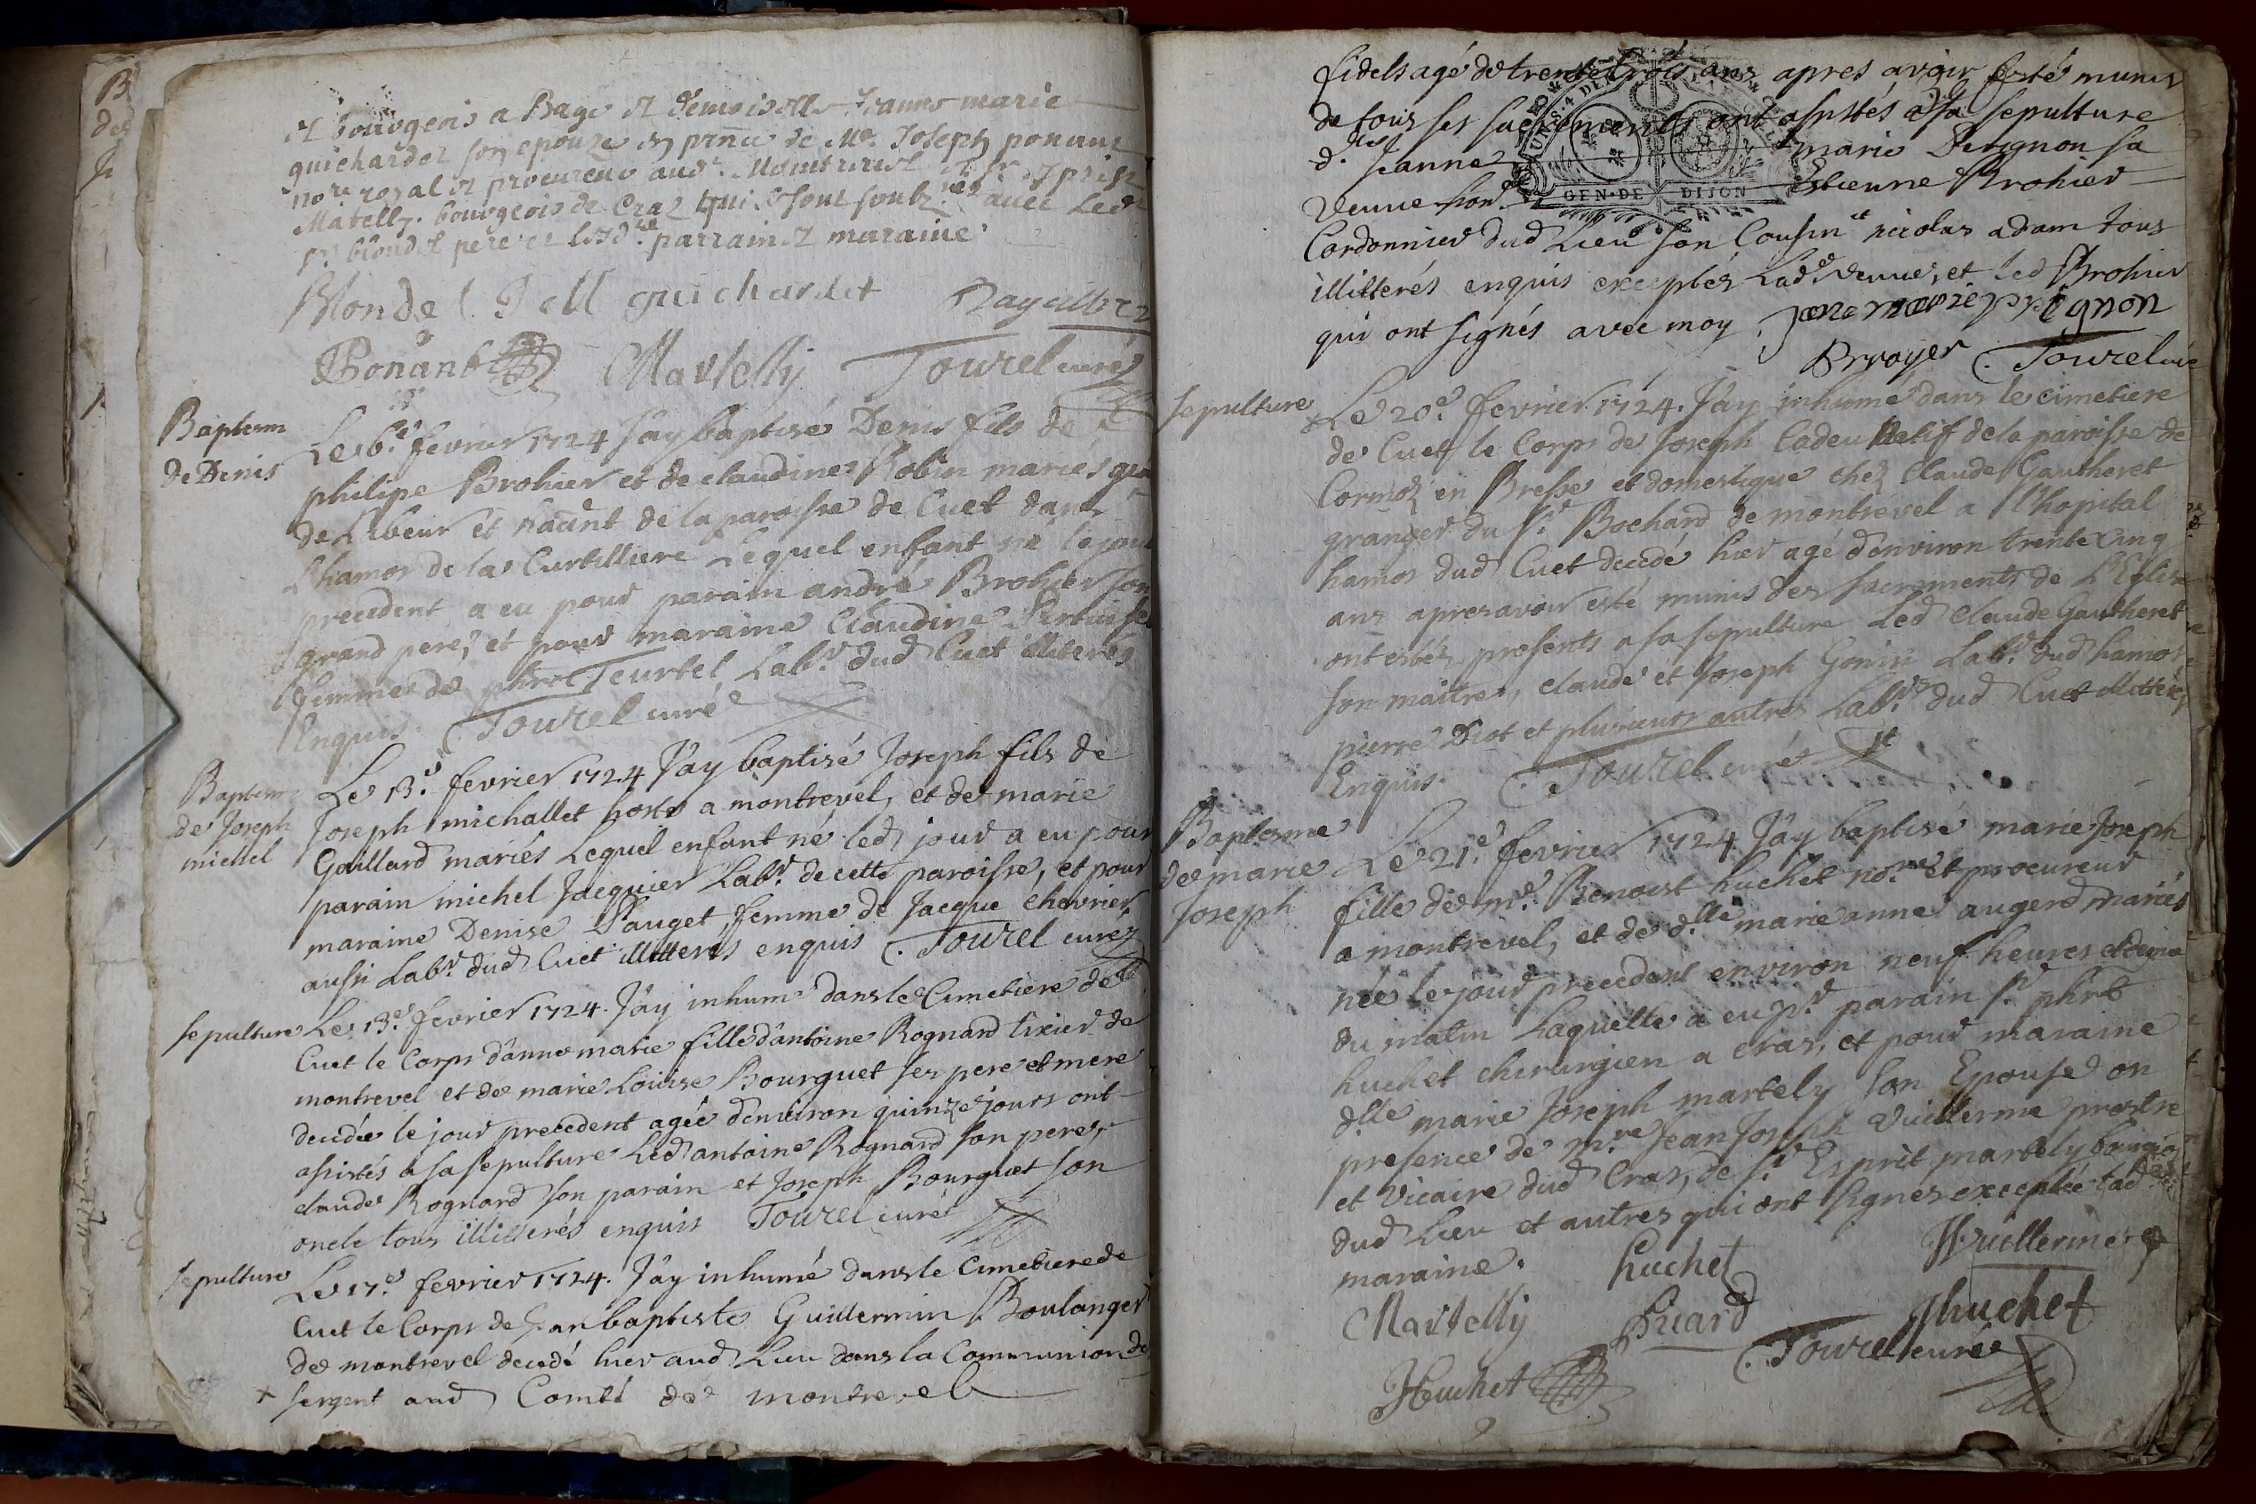 et bourgeois a Bage et demoiselle Jeanne marie
guichardet son epouze en pnce de Me Joseph ponant
nore royal et procureur aud. Montrevel et Sr Esprit
Martelly bourgeois de Cras qui se sont soubz.nes avec led
Sr blondel pere et lesd. parrain et maraine
Blondel J ell guichardet
Ponant Martelly Tourel curé
Baptesm
de Denis
Le 6.e fevrier 1724 J'ay baptisé Denis fils de
philipe Brohier et de claudine Robin mariés
de Labeur et habitnt de la paroisse de Cuet dans
l'hamos de la Curtilliere Lequel enfant né le jour
precedent a eu pour parain andré Brohier son
grand pere, et pour maraine Claudine
femme de phirt Teurtel Labr. dud Cuet illiterés
Enquis. Tourel curé
Baptesme
de Joseph
michel
Le 13.e fevrier 1724 J'ay baptisé Joseph fils de
Joseph michallet hoste a montrevel, et de marie
Gaillard mariés Lequel enfant né led jour a eu pour
parain michel Jacquier Labr. de cette paroisse, et pour
maraine Denise Pauget, femme de Jacque chevrier
aussi Labr. dud Cuet illiterés enquis Tourel curé
sepulture
Le 13.e fevrier 1724. J'ay inhumé dans le Cimetiere de
Cuet le Corps d'anne marie fille d'antoine Rognard tixier de
montrevel et de marie Louise Bourguet ses pere et mere
decedée le jour precedent agée d'environ quinze jours ont
assistés a sa sepulture Led antoine Rognard son pere,
claude Rognard son parain et Joseph Bourguet son
oncle tous illiterés enquis Tourel curé
sepulture
Le 17.e fevrier 1724. J'ay inhumé dans le Cimetiere de
Cuet le Corps de Jean baptiste Guillermin Boulanger
de montrevel decedé hier aud Lieu dans la Communion de
+ sergent aud Comté de montrevel
fidels agé de trente trois ans apres avoir esté munis
de tous ses sacrements ont assistés a sa sepulture
d.lle Jeanne marie Perignon sa
Veuve Estienne Brohier
Cordonnier dud Lieu son Cousin et nicolas adam tous
illitterés enquis exceptés Lad.e veuve, et led Brohier
qui ont signés avec moy. jane marie perignon
Brroyer Tourel curé
GEN·DE DIJON
sepulture
Le 20.e fevrier 1724. J'ay inhumé dans le cimetiere
de Cuet le Corps de Joseph Cadeu Natif de la paroisse de
Cormoz en Bresse et domestique chez Claude Gautheret
granger du Sr. Bochard de montrevel a l'hopital
hamos dud Cuet decedé hier agé d'environ trente Cinq
ans apres avoir esté munis des sacrements de L'Eglise
ont estés presents a sa sepulture Led Claude Gautheret
son maitre, claude et Joseph Gonin Labr. dud hamos,
pierre Diot et plusieurs autres Labrs. dud Cuet illitterés
Enquis. Tourel curé
Baptesme
de marie
Joseph
Le 21.e fevrier 1724 J'ay baptisé marie Joseph
fille de m.e Benoist huchet no.re et procureur
a montrevel, et de d.lle marie anne augerd mariés
née le jour precedent environ neuf heures et demie
du matin Laquelle a eu pr. parain Sr. phirt
huchet chirurgien a cras, et pour maraine
dlle marie Joseph martely son Epouse en
presence de m.re Jean Joseph Vuillerme prestre
et Vicaire dud Cras, de Sr. Esprit martely bourgois
dud Lieu et autres qui ont signes exceptée lad
maraine. huchet Wuillerme
Martelly Picard Jhuchet
Huchet Tourel curé